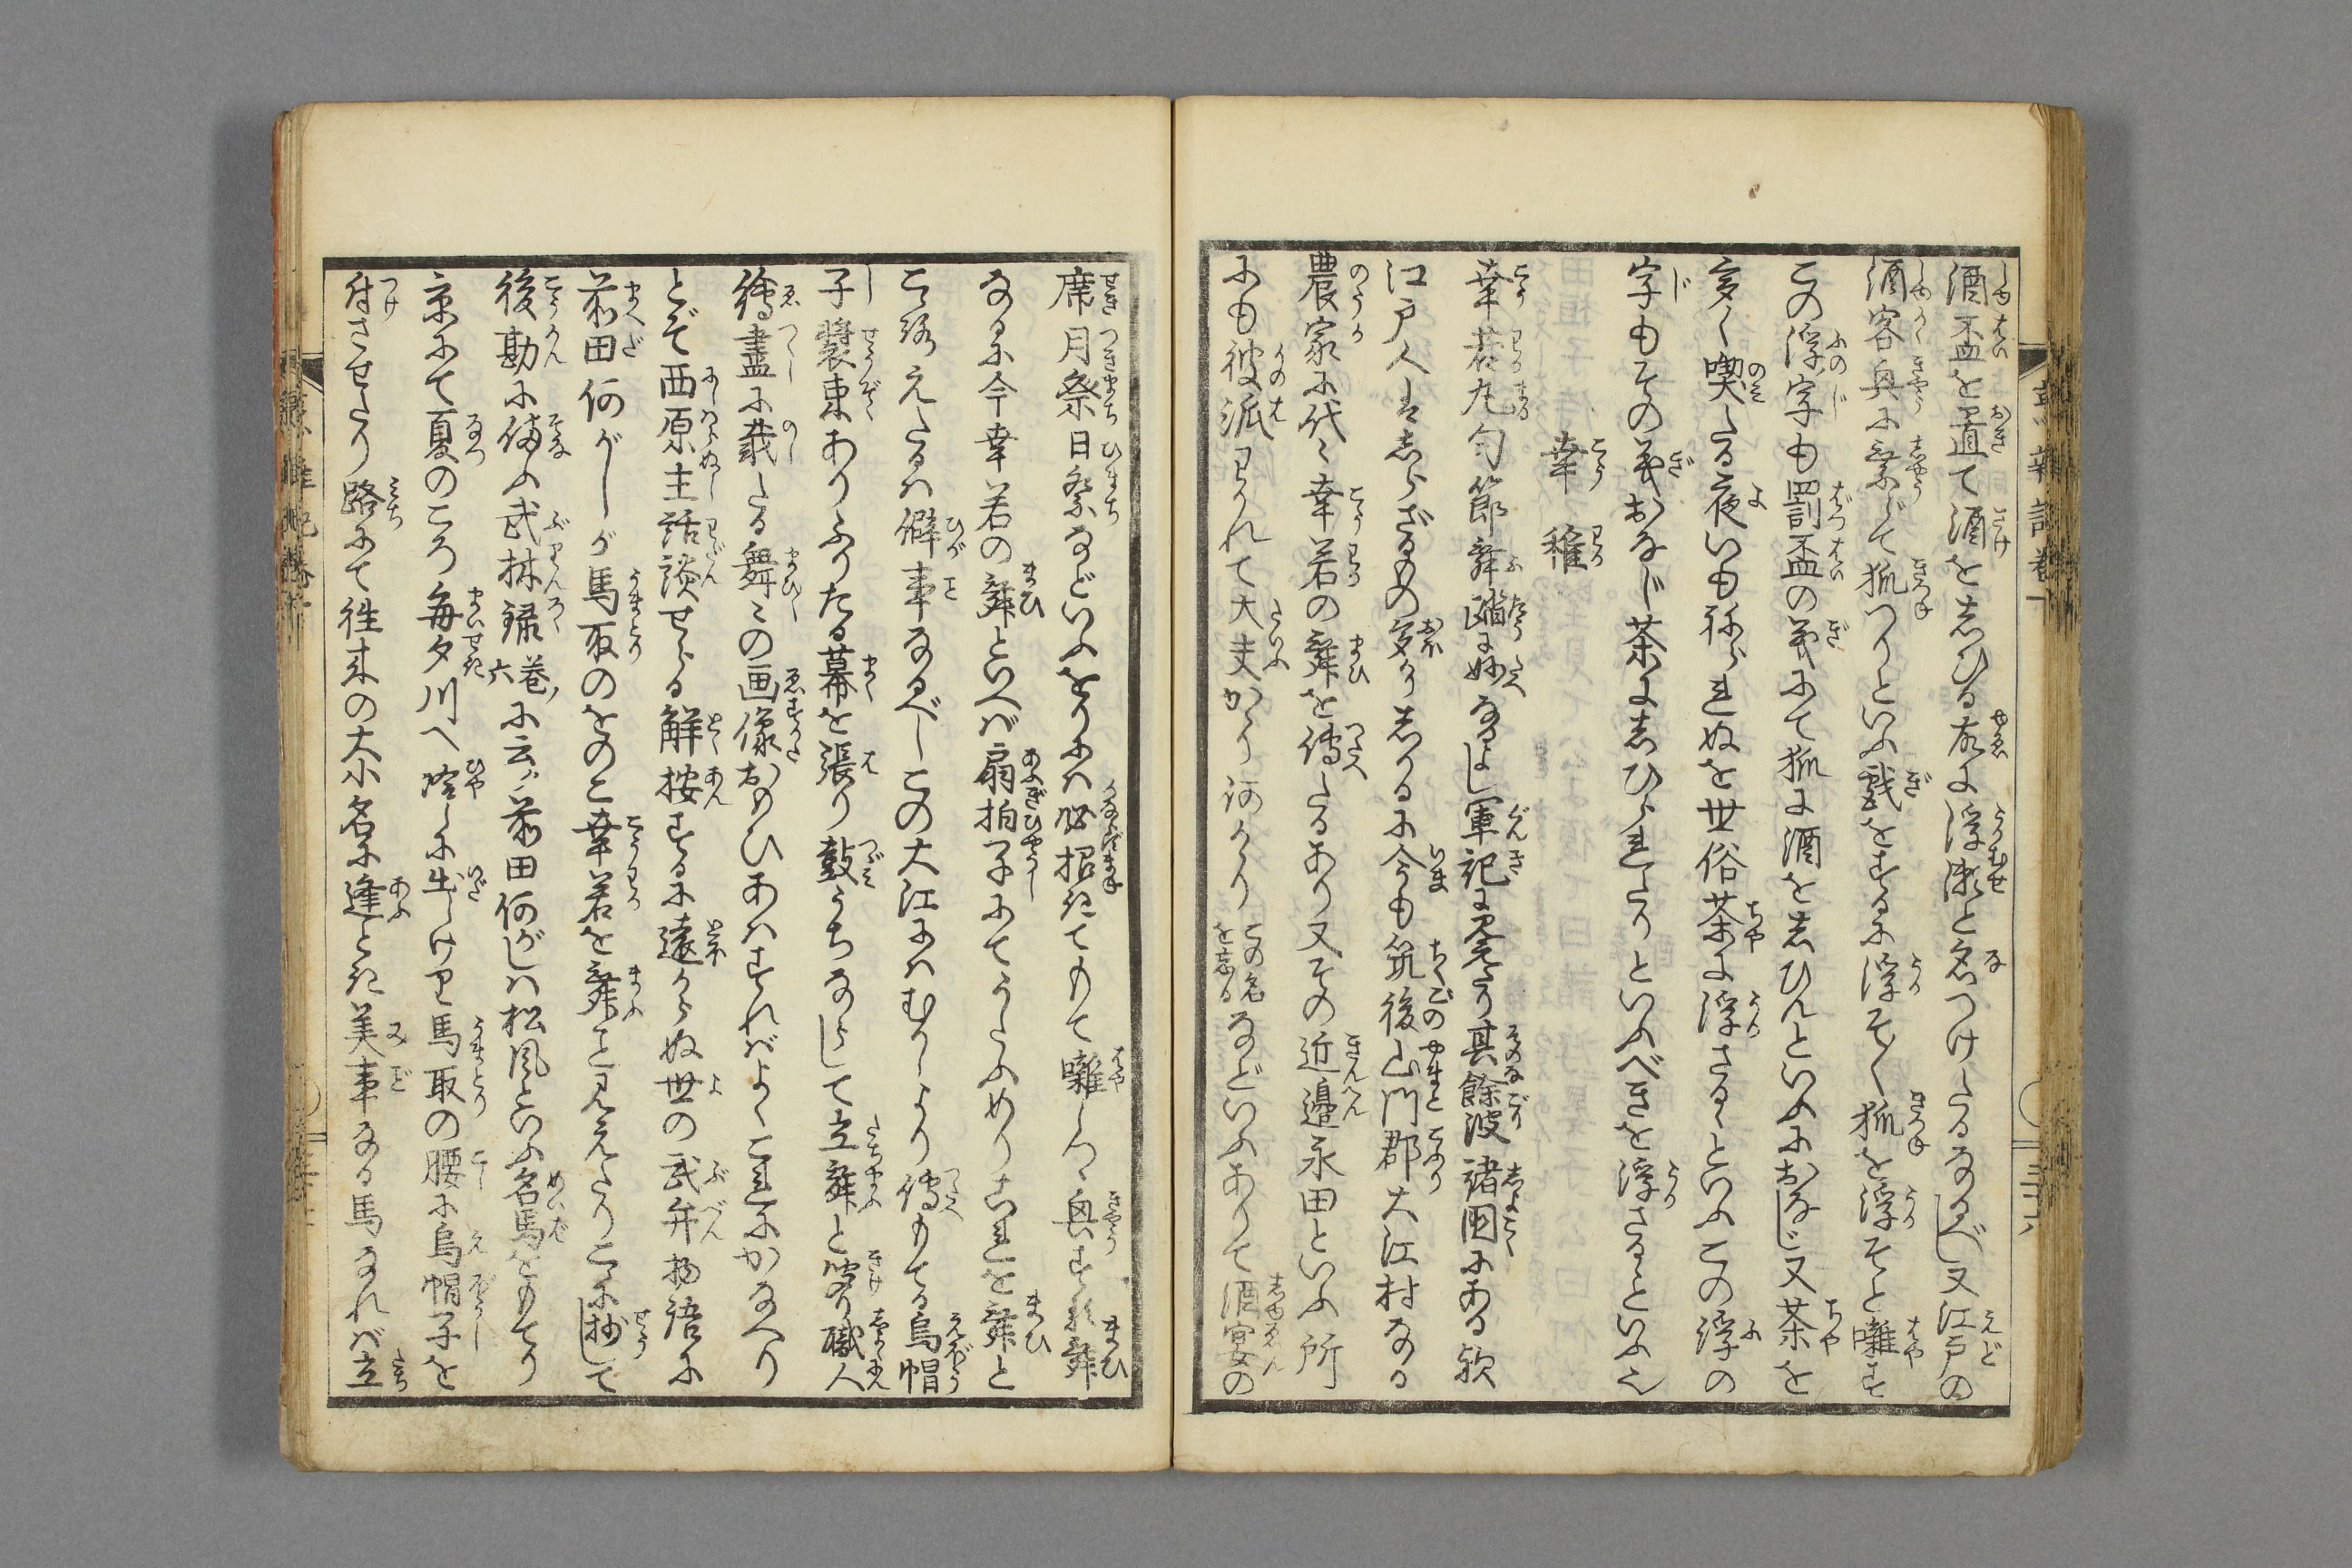 酒盃を置て酒をしひる故に浮瀬と名つけたるなるべし又江戸の
酒客興に乗じて狐つりといふ戯をするに浮そ〱狐を浮そと囃す
この浮字も罰盃の義にて狐に酒をしひんといふにおなじ又茶を
多く喫たる夜いも祢られぬを世俗茶に浮さるゝといふこの浮の
字もその義おなじ茶にしひられたりといふべきを浮さるといふ也
幸稚
幸若丸勻節舞蹈に妙なるよし軍記に見えたり其餘波諸国にある歟
江戸人はしらざるもの多かりしかるに今も筑後山門郡大江村なる
農家に代々幸若の舞を傳たるあり又その近邉永田といふ所
にも彼派わかれて大夫かゝり河かゝり この名を忘る などいふありて酒宴の
席月祭日祭などいふをりには必招きてもて囃しつゝ興ず彩舞
なるに今幸若の舞といへば扇拍子にてうたふめりこれを舞と
こゝろえたるは僻事なるべしこの大江にはむかしより傳もてる烏帽
子裝束ありふりたる幕を張り鼓うちならして立舞と聞り職人
繪盡に載たる舞々の画像おもひあはすればよくこれにかなへり
とぞ西原主話談せらる觧按ずるに遠からぬ世の武弁物語に
前田何がしが馬取のをのこ幸若を舞こと見えたりこゝに抄して
後勘に備ふ武林録巻ノ六に云ク前田何がしは松風といふ名馬をもてり
京にて夏のころ毎夕川へ冷しに出しけり馬取の腰に烏帽子を
付させたり路にて徃来の大小名に逢とき美事なる馬なれば立